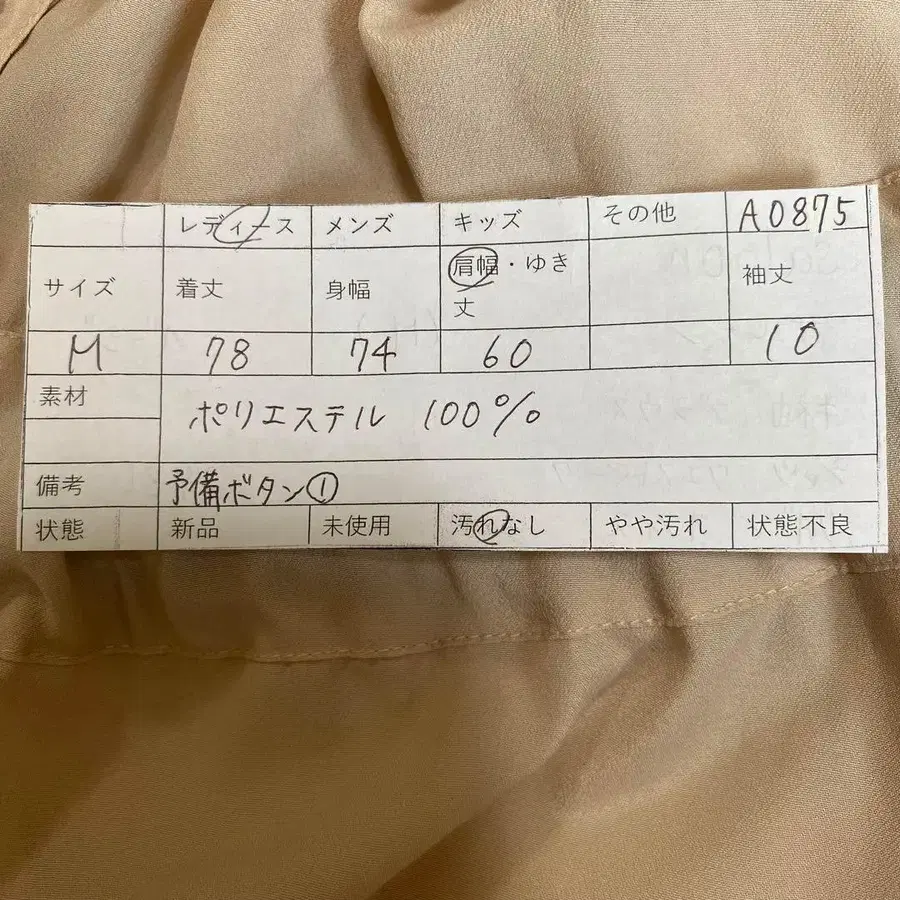 レディース メンズ キッズ その他 A0875
サイズ 着丈 身幅 肩幅・ゆき丈 袖丈
M 78 74 60 10
素材 ポリエステル 100%
備考 予備ボタン①
状態 新品 未使用 汚れなし やや汚れ 状態不良